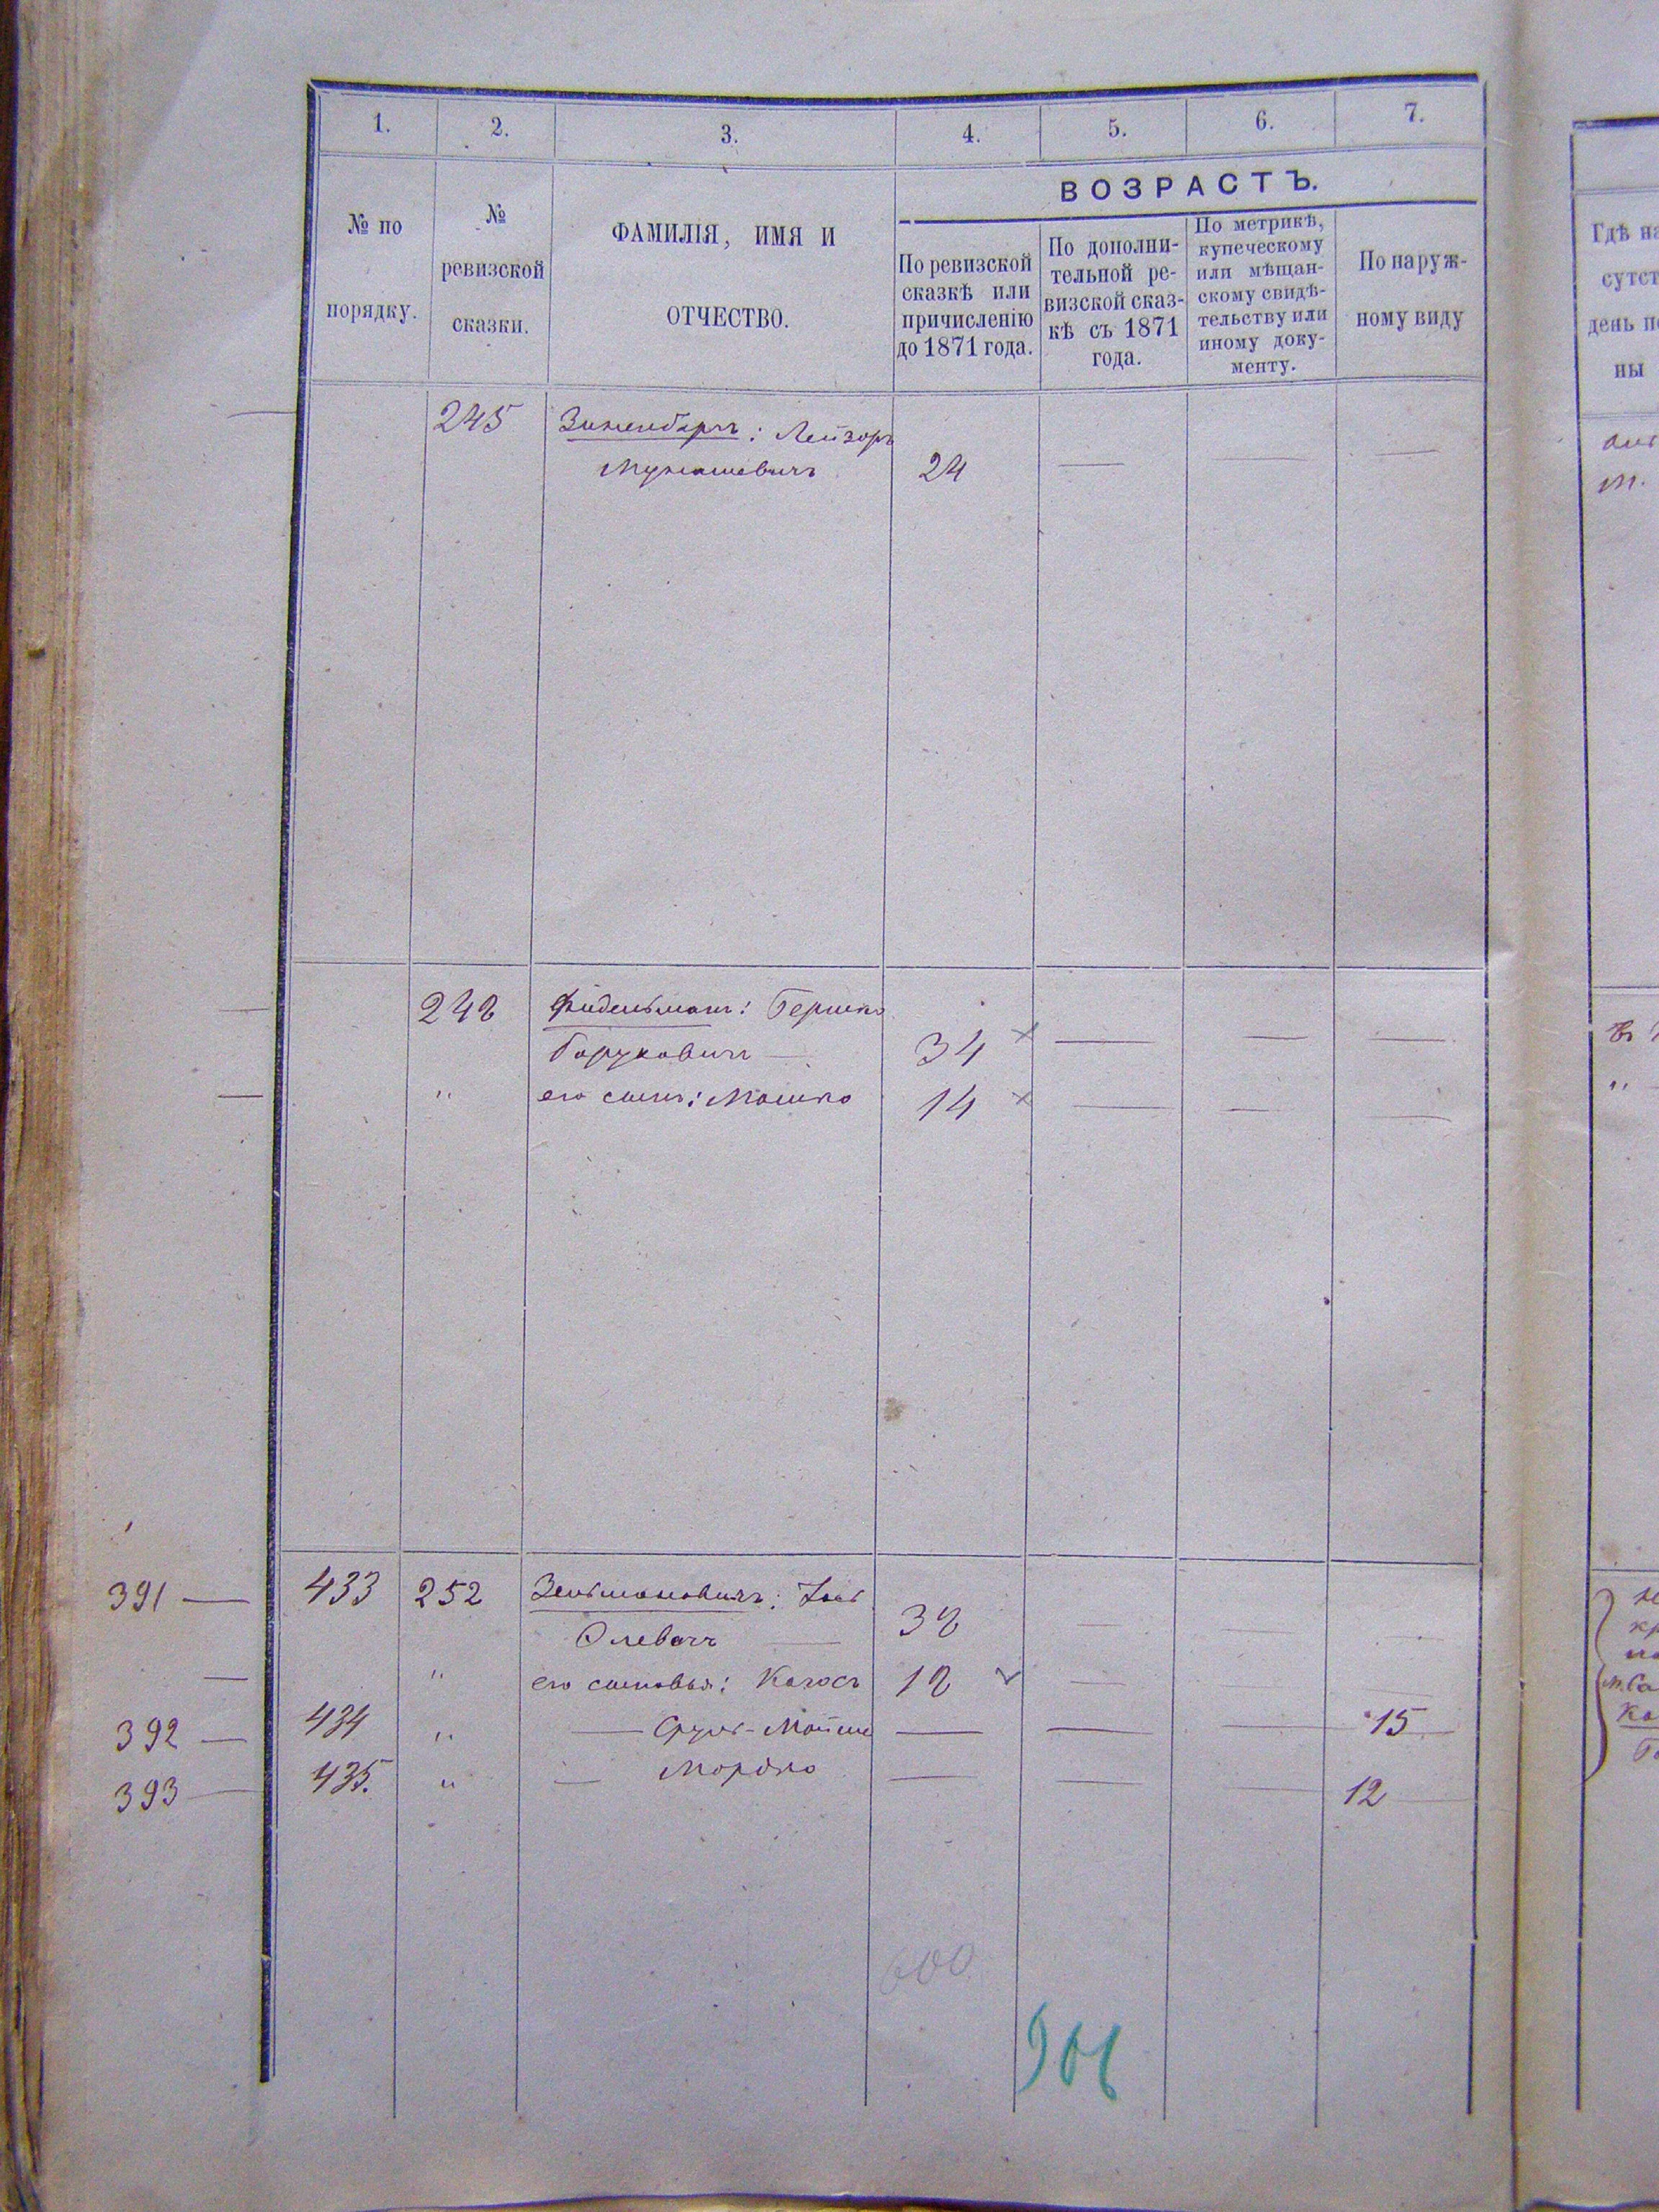 1. 2. 3. 4. 5. 6. 7.
№ по порядку.
№ ревизской сказки.
ФАМИЛІЯ, ИМЯ И
ОТЧЕСТВО.
ВОЗРАСТЪ.
По ревизской
сказкѣ или
причисленію
до 1871 года.
По дополни-
тельной ре-
визской сказ-
кѣ съ 1871
года.
По метрикѣ,
купеческому
или мѣщан-
скому свидѣ-
тельству или
иному доку-
менту.
По наруж-
ному виду
Гдѣ на
сутст
день п
ны
245 : Лейзоръ
24 — — —
248 Фидельманъ: Гершко
Боруховичъ — 34 — — —
" его сынъ: Мошко 14 — — —
391 — 433 252 Зельмановичъ:
38 — — —
— " его сыновья: 18 — — —
392 — 434 " — Сруль-Мойше — — — 15
393 — 435. " — Мордко — — — 12
600